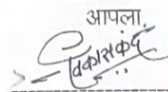 आपला.
विकासकंद